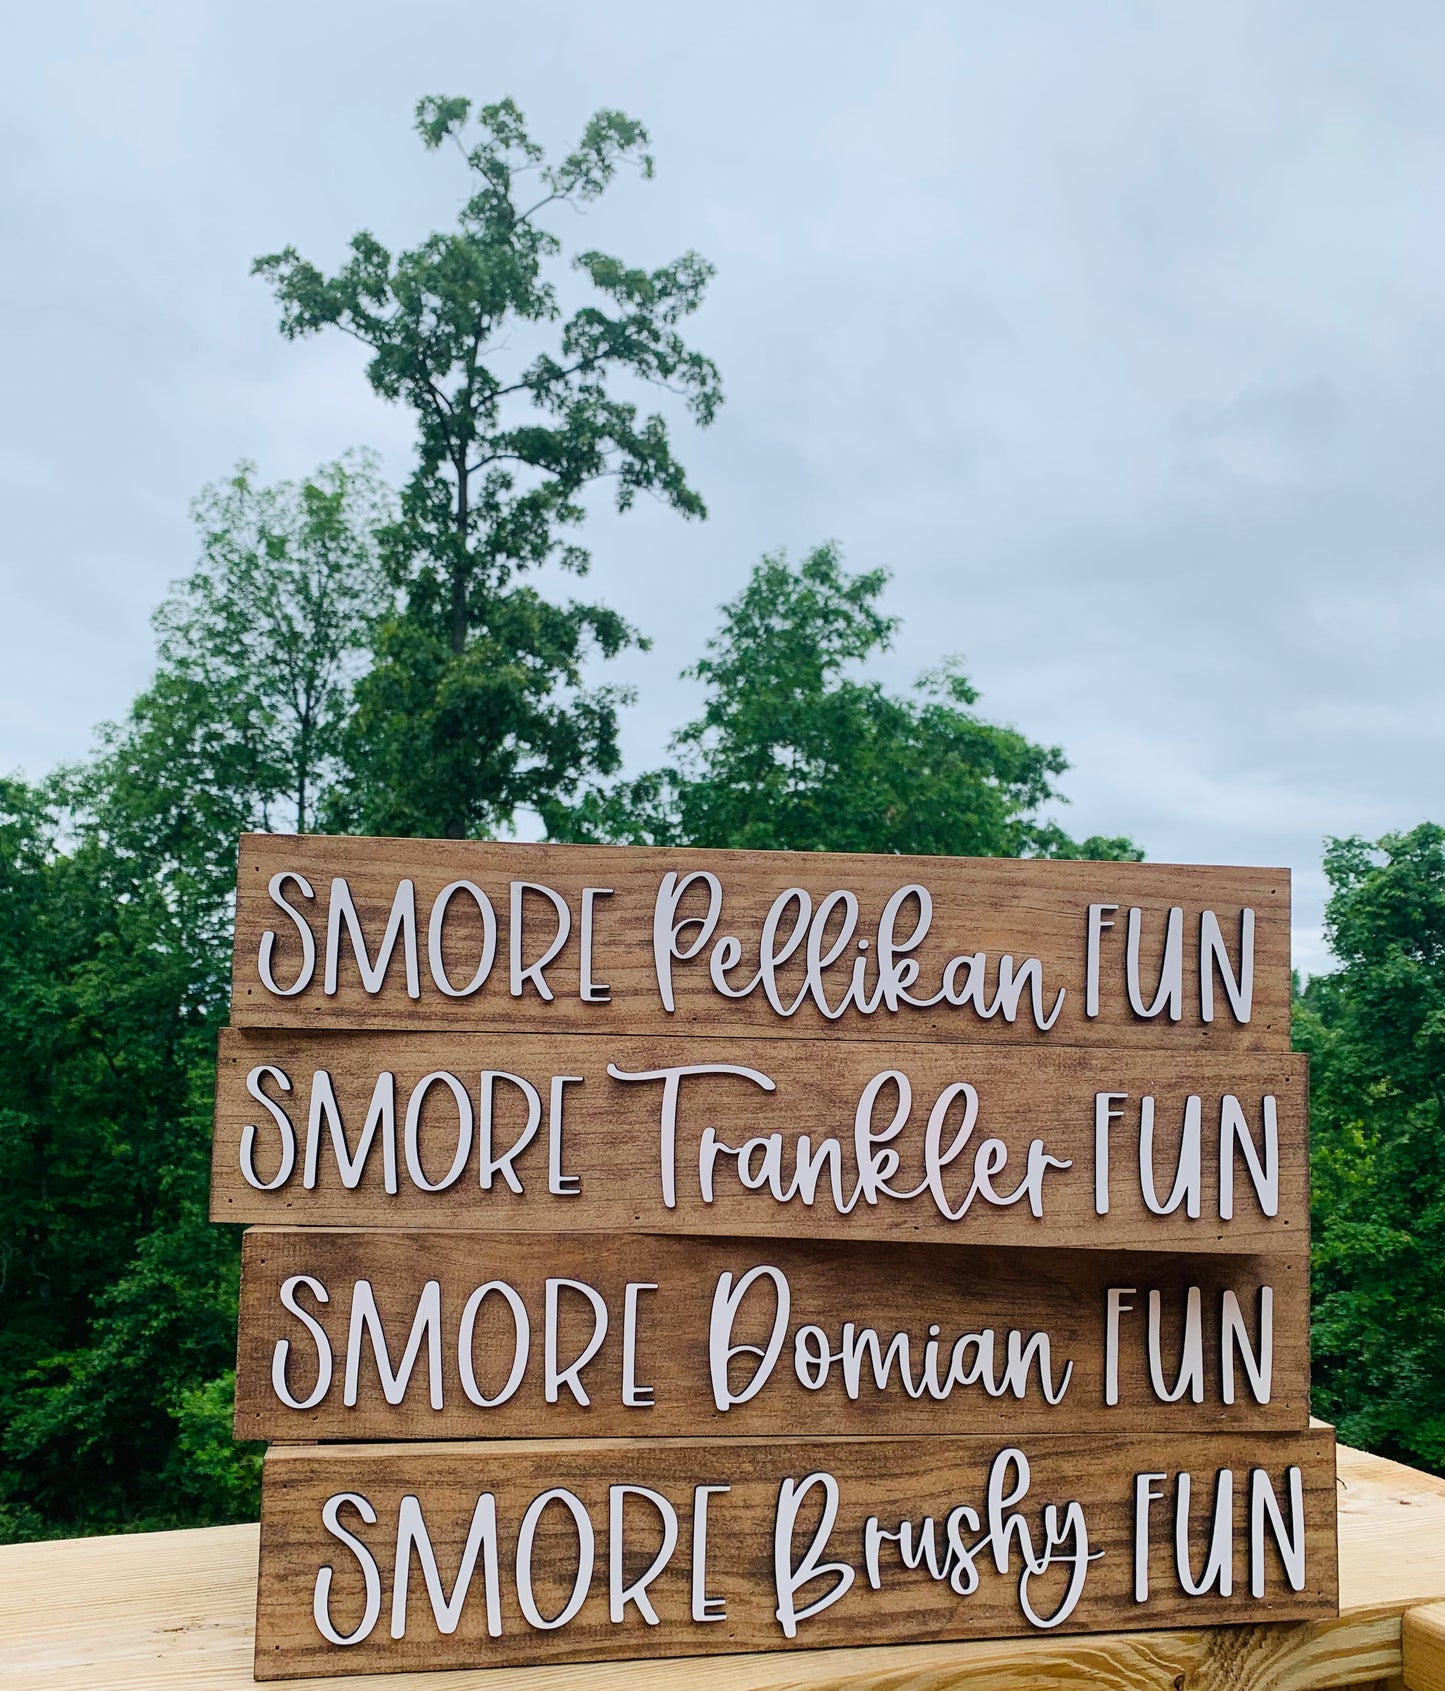 SMORE Pellikan FUN
SMORE Trankler FUN
SMORE Domian FUN
SMORE Brushy FUN